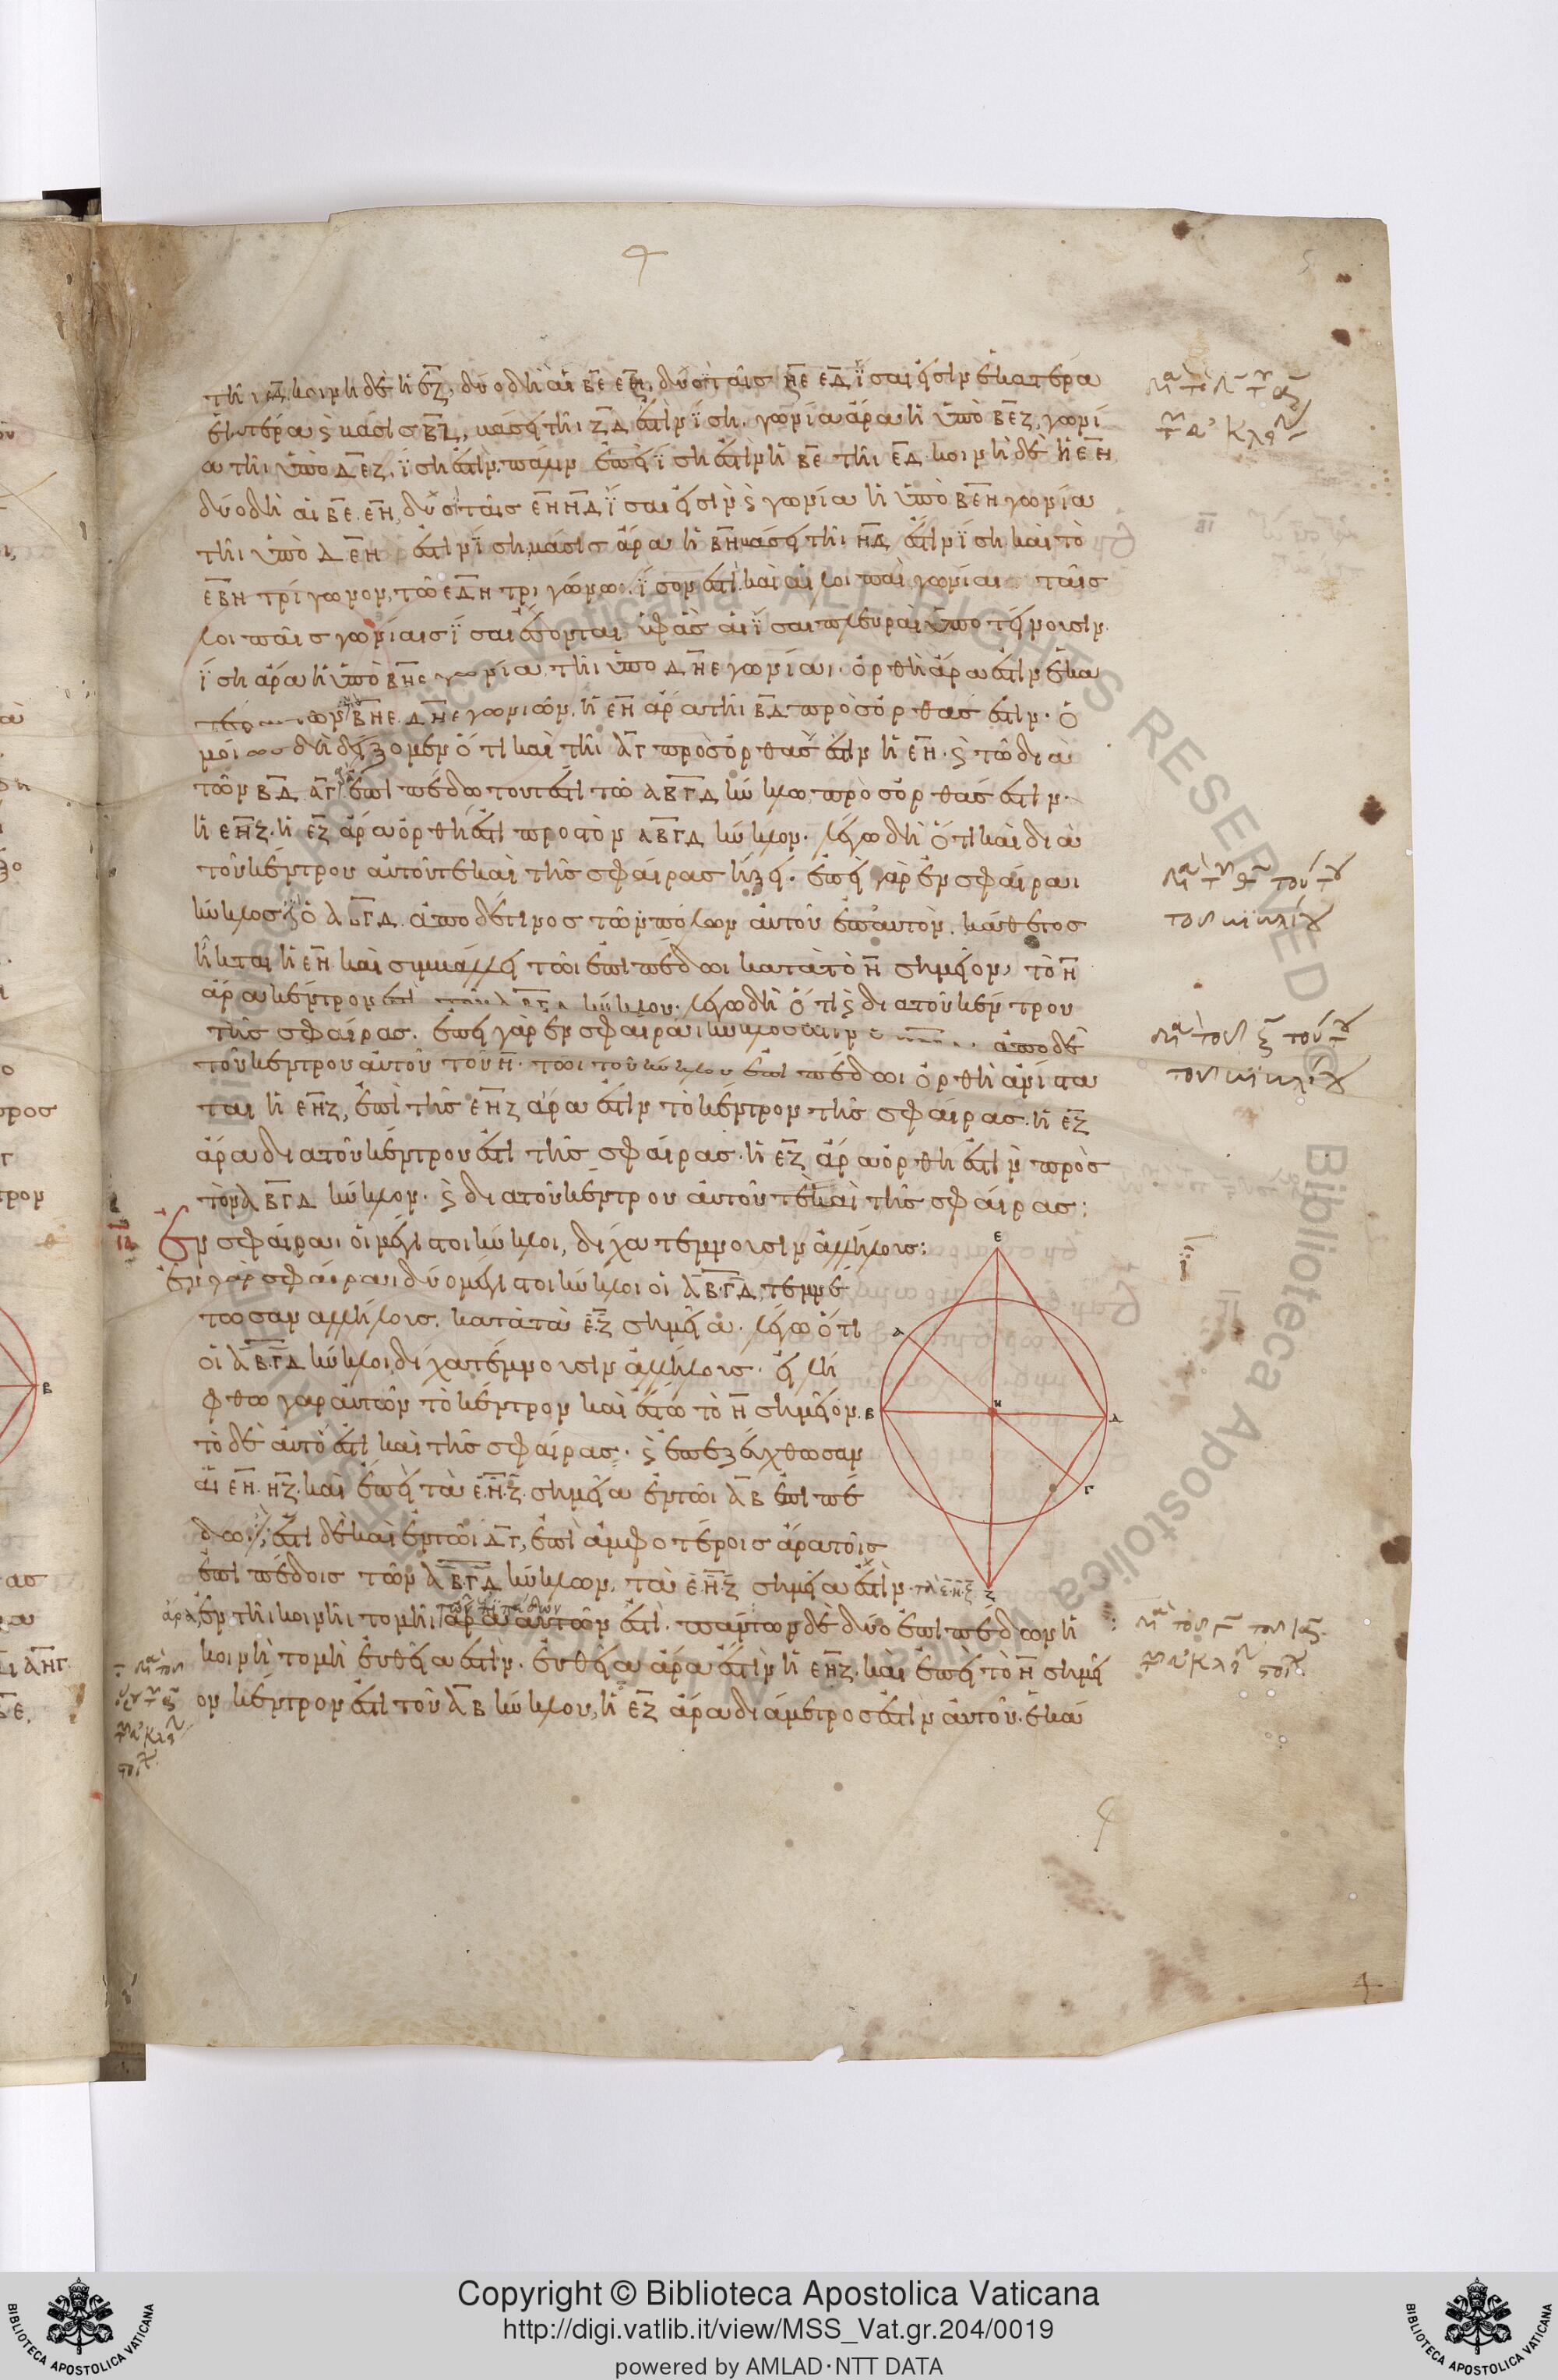 τῆι ΕΔ κοινὴ δὲ ἡ ΕΖ, δύο δὴ αἱ ΒΕ ΕΖ, δύσι ταῖς ΖΕ ΕΔ ἴσαι εἰσὶν ἑκατέρα
ἑκατέρα ϗ βάσις ΒΖ, βάσει τῆι ΖΔ ἐστὶν ἴση. γωνία ἄρα ἡ ὑπὸ ΒΕΖ, γωνί
α τῆι ὑπὸ ΔΕΖ, ἴση ἐστίν. πάλιν ἐπεὶ ἴση ἐστὶν ἡ ΒΕ τῆι ΕΔ. κοινὴ δὲ ἡ ΕΗ
δύο δὴ αἱ ΒΕ. ΕΗ, δυσὶ ταῖς ΕΗ ΗΔ ἴσαι εἰσὶν ϗ γωνία ἡ ὑπὸ ΒΕΗ γωνία
τῆι ὑπὸ ΔΕΗ ἐστὶν ἴση βάσις ἄρα ἡ ΒΗ βάσει τῆι ΗΔ ἐστὶν ἴση καὶ τὸ
ΕΒΗ τρίγωνον, τῶ ΕΔΗ τριγώνω. ἴσον ἐστὶ. καὶ αἱ λοιπαὶ γωνίαι ταῖς
λοιπαῖς γωνίαις ἴσαι ἔσονται, ὑφ ἃς αἱ ἴσαι πλευραὶ ὑποτείνουσιν.
ἴση ἄρα ἡ ὑπὸ ΒΗΕ γωνία τῆι ὑπο ΔΗΕ γωνίαι. ὀρθὴ ἄρα ἐστὶν ἑκα
τέρα τῶν ΒΗΕ. ΔΗΕ γωνιῶν. ἡ ΕΗ ἄρα τῆι ΒΔ πρὸς ὀρθάς ἐστιν. ὁ
μοίως δὴ δείξομεν ὅτι καὶ τῆι ΑΓ πρὸς ὀρθάς ἐστιν ἡ ΕΗ. ϗ τῶ διὰ
τῶν ΒΔ ΑΓ ἐπιπέδω τουτἐστὶ τῶ ΑΒΓΔ κύκλω πρὸς ὀρθάς ἐστιν.
ἡ ΕΗΖ. ἡ ΕΖ ἄρα ὀρθή ἐστι προς τὸν ΑΒΓΔ κύκλον. λέγω δὴ ὅτι καὶ διὰ
τοῦ κέντρου αὐτοῦ τε καὶ τῆς σφαίρας ἥξει. ἐπεὶ γὰρ ἐν σφαίραι
κύκλος ὁ ΑΒΓΔ. ἀπο δέ τινος τῶν πόλων αὐτοῦ ἐπ αὐτὸν. κάθετος
ἦκται ἡ ΕΗ καὶ συμβάλλει τῶι ἐπιπέδωι κατὰ τὸ Η σημεῖον, τὸ Η
ἄρα κέντρον ἐστὶ τοῦ ΑΒΓΔ κύκλου. λέγω δὴ ὅτι ϗ δια τοῦ κέντρου
τῆς σφαίρας. ἐπεὶ γὰρ ἐν σφαίραι κύκλος ἐστὶν ὁ ἀπο δὲ
τοῦ κέντρου αὐτοῦ τοῦ Η. τῶι τοῦ κύκλου ἐπιπέδωι ὀρθὴ ἀνίστα
ται ἡ ΕΗΖ, ἐπὶ τῆς ΕΗΖ ἄρα ἐστὶν τὸ κέντρον τῆς σφαίρας. ἡ ΕΖ
ἄρα δια τοῦ κέντρου ἐστὶ τῆς σφαίρας. ἡ ΕΖ ἄρα ὀρθή ἐστιν πρὸς
τὸν ΑΒΓΔ κύκλον. ϗ δια τοῦ κέντρου αὐτοῦ τὲ καὶ τῆς σφαίρας:
ια Ἐν σφαίραι οἱ μέγιστοι κύκλοι, δίχα τέμνουσιν ἀλλήλους:
ἐν γὰρ σφαίραι δύο μέγιστοι κύκλοι οἱ ΑΒ.ΓΔ, τεμνέ
τωσαν ἀλλήλους. κατὰ τὰ Ε.Ζ σημεῖα. λέγω ὅτι
οἱ ΑΒ.ΓΔ κύκλοι δίχα τέμνουσιν ἀλλήλους. εἰλή
φθω γαρ αὐτῶν τὸ κέντρον καὶ ἔστω τὸ Η σημεῖον.
τὸ δὲ αὐτό ἐστι καὶ τῆς σφαίρας. ϗ ἐπεζεύχθωσαν
αἱ ΕΗ. ΗΖ. καὶ ἐπεὶ τὰ Ε.Η.Ζ. σημεῖα ἐν τῶι ΑΒ ἐπιπέ
δω. ἐστὶ δὲ καὶ ἐν τῶι ΔΓ, ἐπὶ ἀμφοτέροις ἄρα τοῖς
ἐπιπέδοις τῶν ΑΒ.ΓΔ κύκλων, τὰ Ε.Η.Ζ σημεῖα ἐστίν. τὰ Ε.Η.Ζ
ἄρα, ἐν τῆι κοινῆι τομῆι ἄρα αὐτῶν ἐστὶ. πάντων δὲ δύο ἐπιπέδων ἡ
τῶν ἐπιπέδων
κοινὴ τομὴ εὐθεῖα ἐστίν. εὐθεῖα ἄρα ἐστὶν ἡ ΕΗΖ. καὶ ἐπεὶ τὸ Η σημεῖ
ον κέντρον ἐστὶ τοῦ ΑΒ κύκλου, ἡ ΕΖ ἄρα διάμετρος ἐστὶν αὐτοῦ. ἑκά
Ε
Α
Β
Η
Δ
Γ
Ζ
Copyright © Biblioteca Apostolica Vaticana
http://digi.vatlib.it/view/MSS_Vat.gr.204/0019
powered by AMLAD·NTT DATA